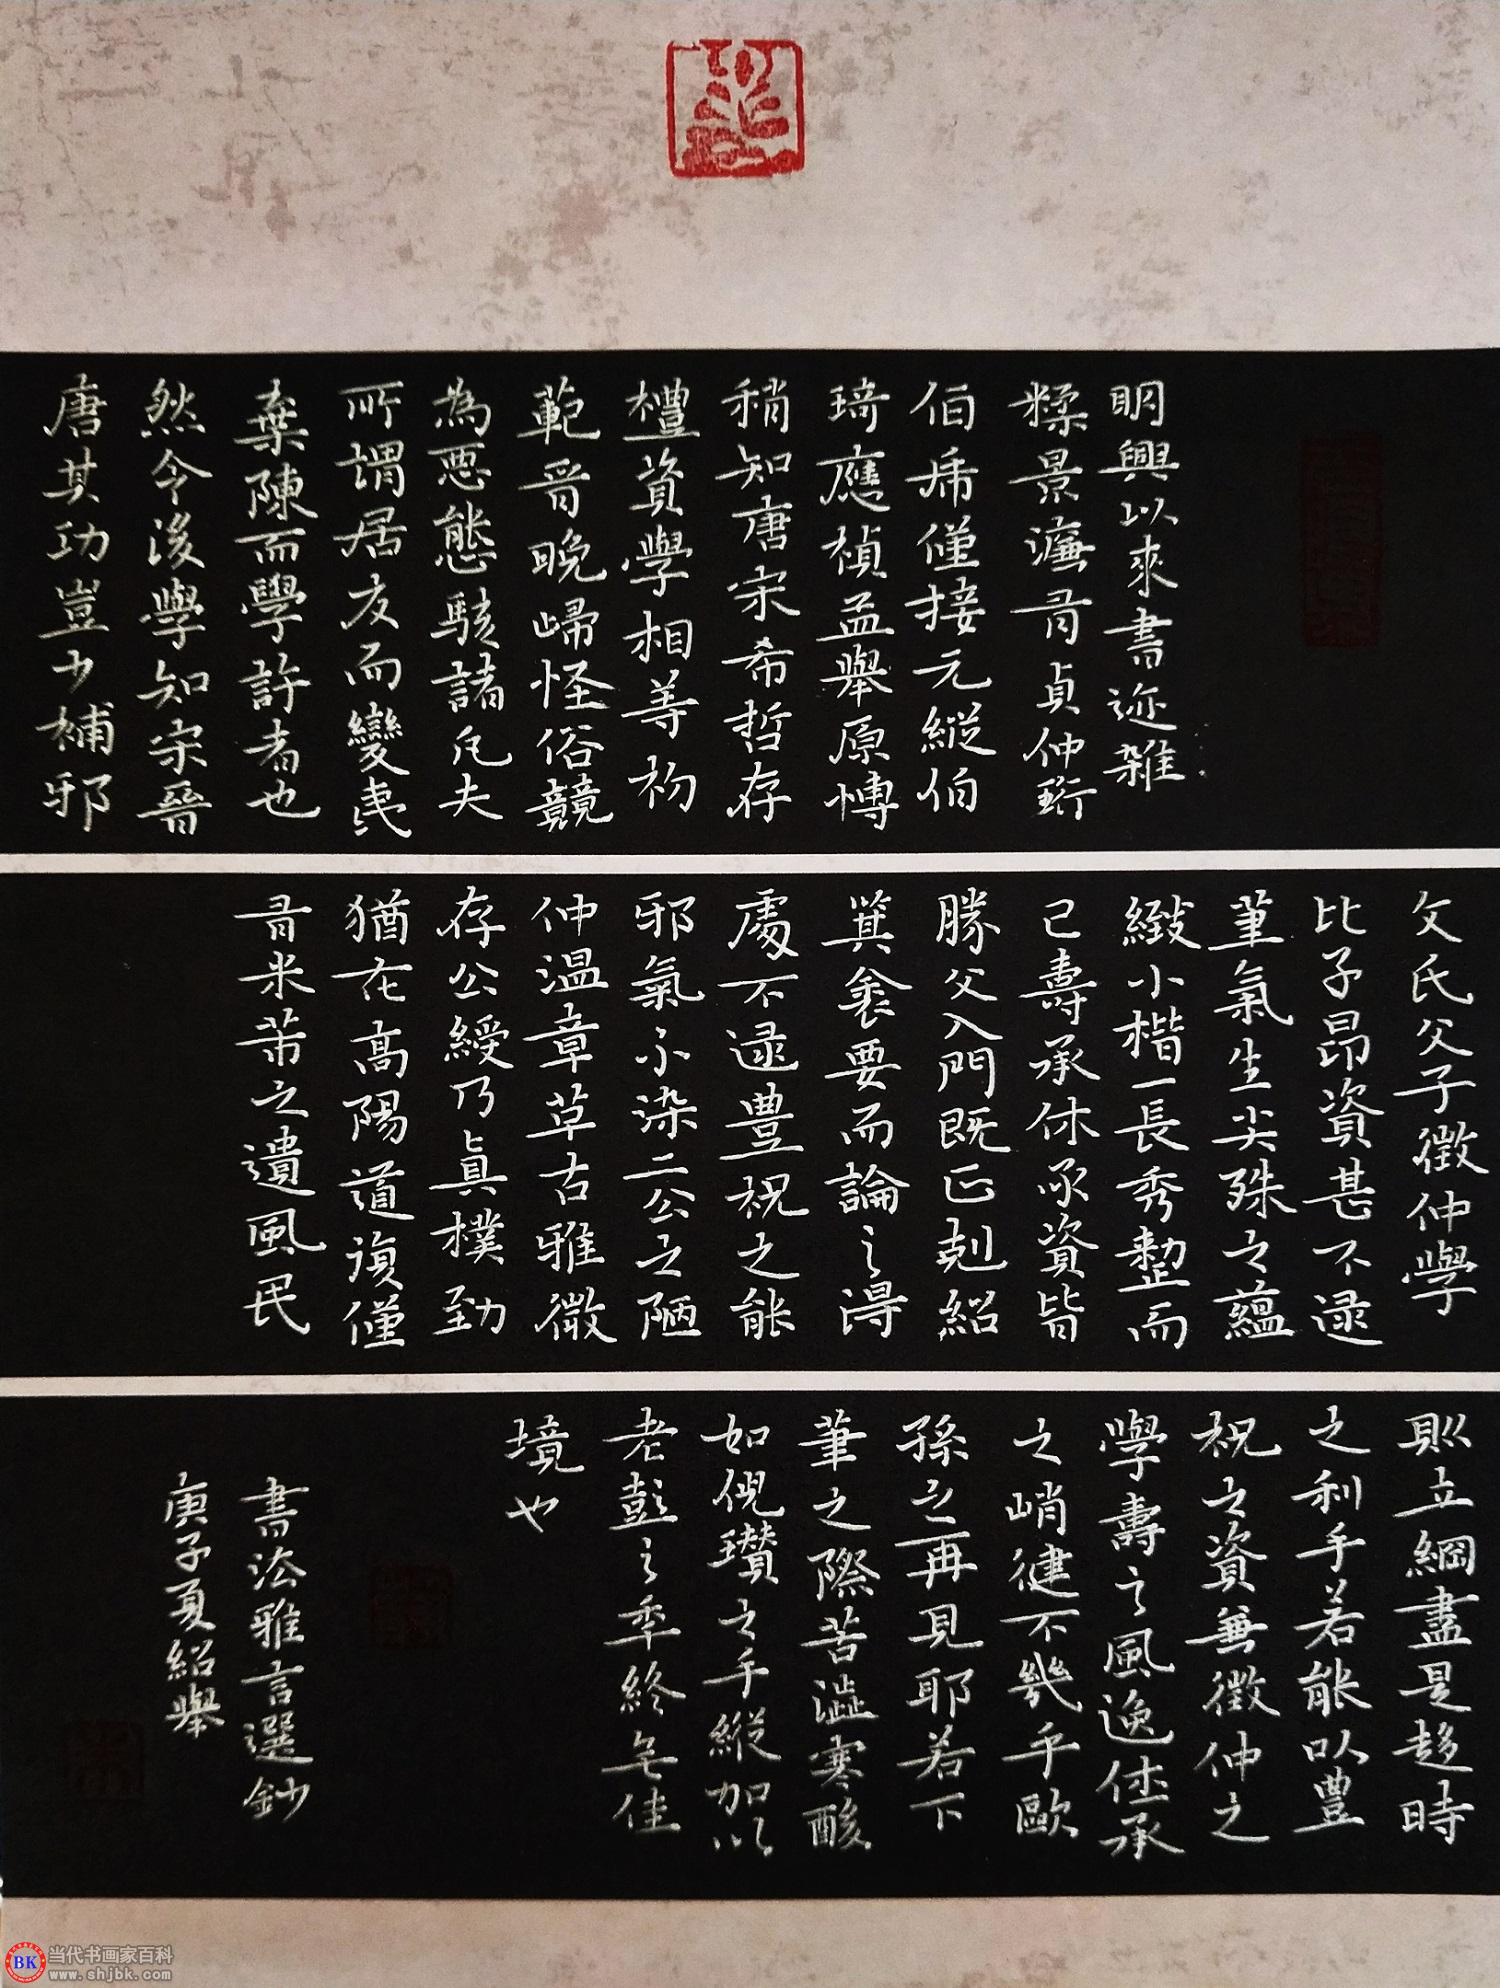 明興以來書迹雜
糅景濂有貞仲珩
伯虎僅接元縱伯
琦應楨孟舉原博
稍知唐宋希哲存
禮資學相等初
範晉晚歸怪俗競
為惡態駭諸凡夫
所謂居夷而變夷
棄陳而學許者也
然令後學知宋晉
唐其功豈少補邪
文氏父子徵仲學
比子昂資甚不逮
筆氣生尖殊之蘊
緻小楷一長秀整而
已壽承休承資皆
勝父入門既正克紹
箕裘要而論之得
處不逮豐祝之能
邪氣不染二公之陋
仲溫章草古雅微
存公綬乃真樸勁
猶在高陽道復僅
有米芾之遺風民
則立綱盡是趍時
之利手若能以豐
祝之資兼徵仲之
學壽之風逸休承
之峭健不幾乎歐
孫之再見耶若下
筆之際苦澀寒酸
如倪瓚之手縱加以
老彭之年終無佳
境也
書法雅言選鈔
庚子夏紹舉
BK 当代书画家百科
www.shjbk.com